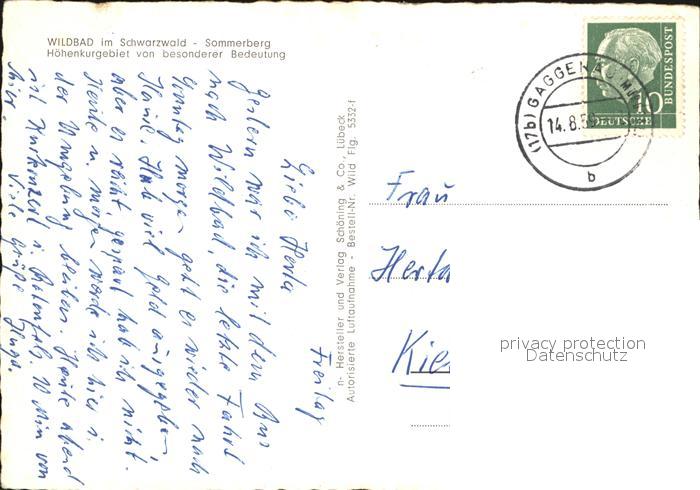 WILDBAD im Schwarzwald - Sommerberg
Höhenkurgebiet von besonderer Bedeutung
Freitag
Liebe Herta
Gestern war ich mit dem Bus
nach Wildbad, die letzte Fahrt
Sonntag morgen geht es wieder nach
Hause. Hab viel Geld ausgegeben,
aber es reicht, gespart hab ich nicht.
Heute u. morgen werde ich hier i.
der Umgebung bleiben. Heute abend
ist Kurkonzert i. Rotenfels. 10 Min von
hier. Viele Grüße Hugo.
n- Hersteller und Verlag Schöning & Co., Lübeck
Autorisierte Luftaufnahme - Bestell-Nr. Wild Flg. 5332-f
DEUTSCHE
BUNDESPOST
10
(17b) GAGGENAU
14.8.5
b
Frau
Herta
Kie
privacy protection
Datenschutz